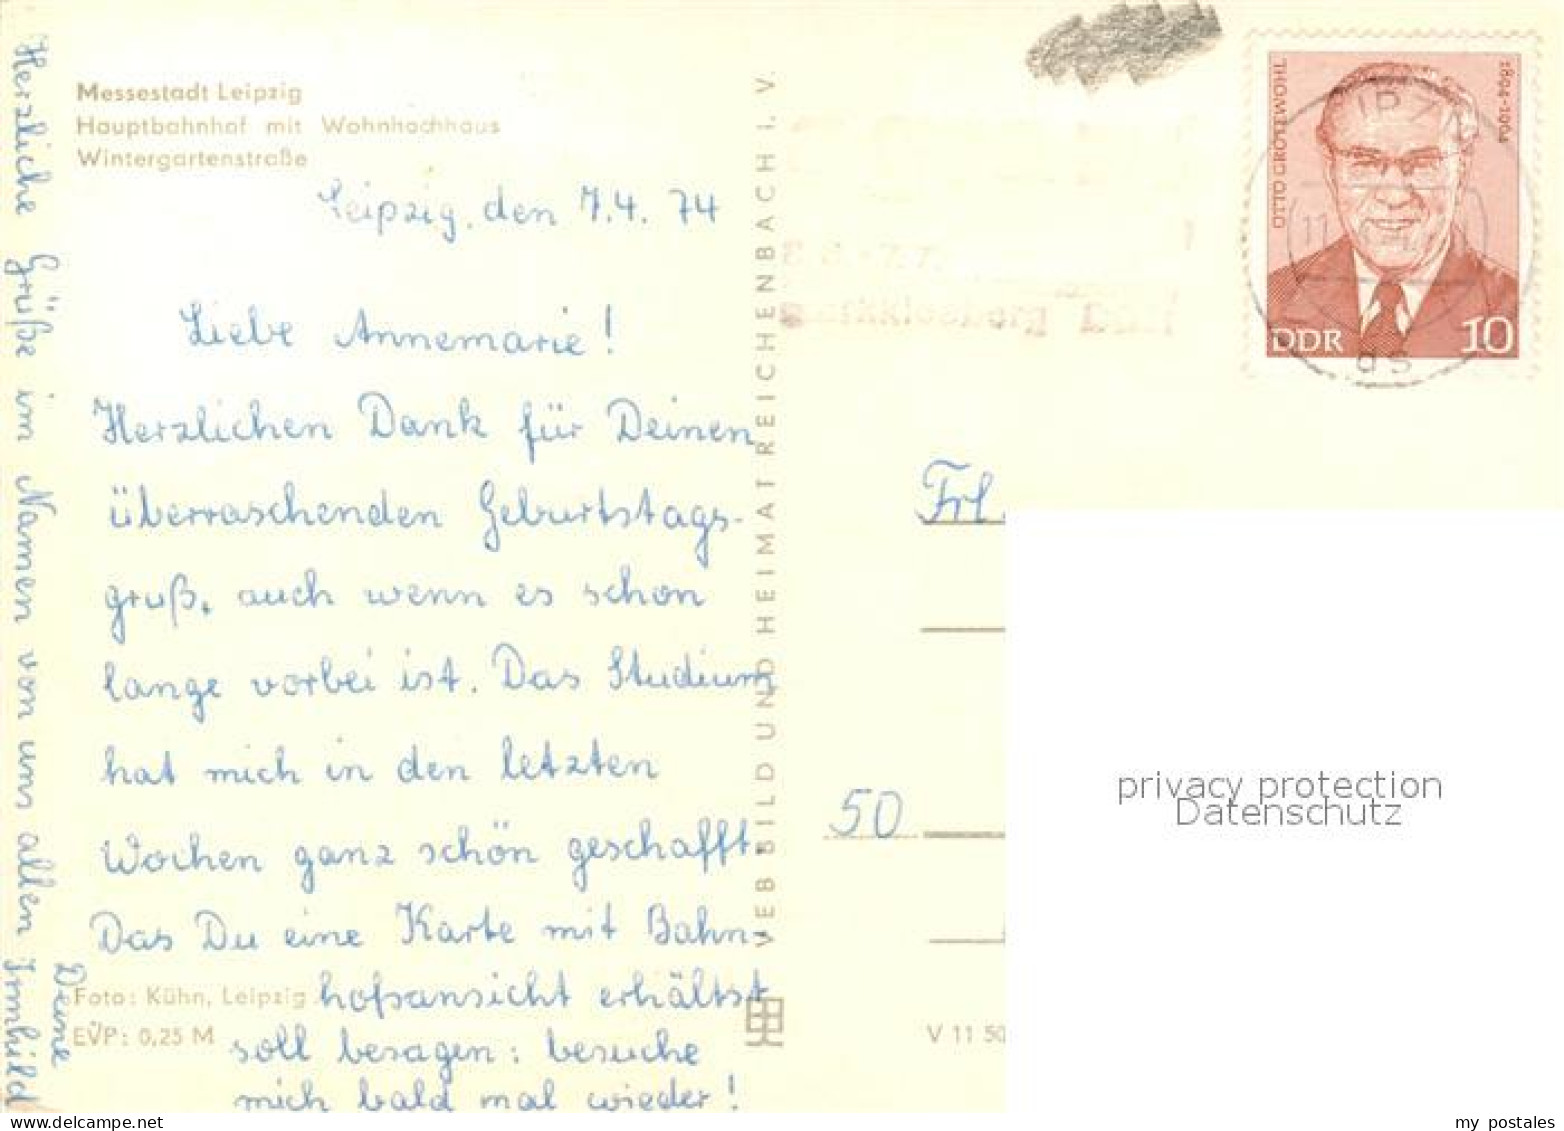 Messestadt Leipzig
Hauptbahnhof mit Wohnhochhaus
Wintergartenstraße
Leipzig, den 7.4. 74
Liebe Annemarie!
Herzlichen Dank für Deinen
überraschenden Geburtstags-
gruß, auch wenn es schon
lange vorbei ist. Das Studium
hat mich in den letzten
Wochen ganz schön geschafft.
Das Du eine Karte mit Bahn-
hofsansicht erhältst
soll besagen: besuche
mich bald mal wieder!
Herzliche Grüße im Namen von uns allen
Deine
Irmhild
Foto: Kühn, Leipzig
EVP: 0,25 M
VEB BILD UND HEIMAT REICHENBACH I. V.
OTTO GROTEWOHL
1894-1964
DDR 10
11
Frl.
50
V 11 50
privacy protection
Datenschutz
delcampe.net
my_postales